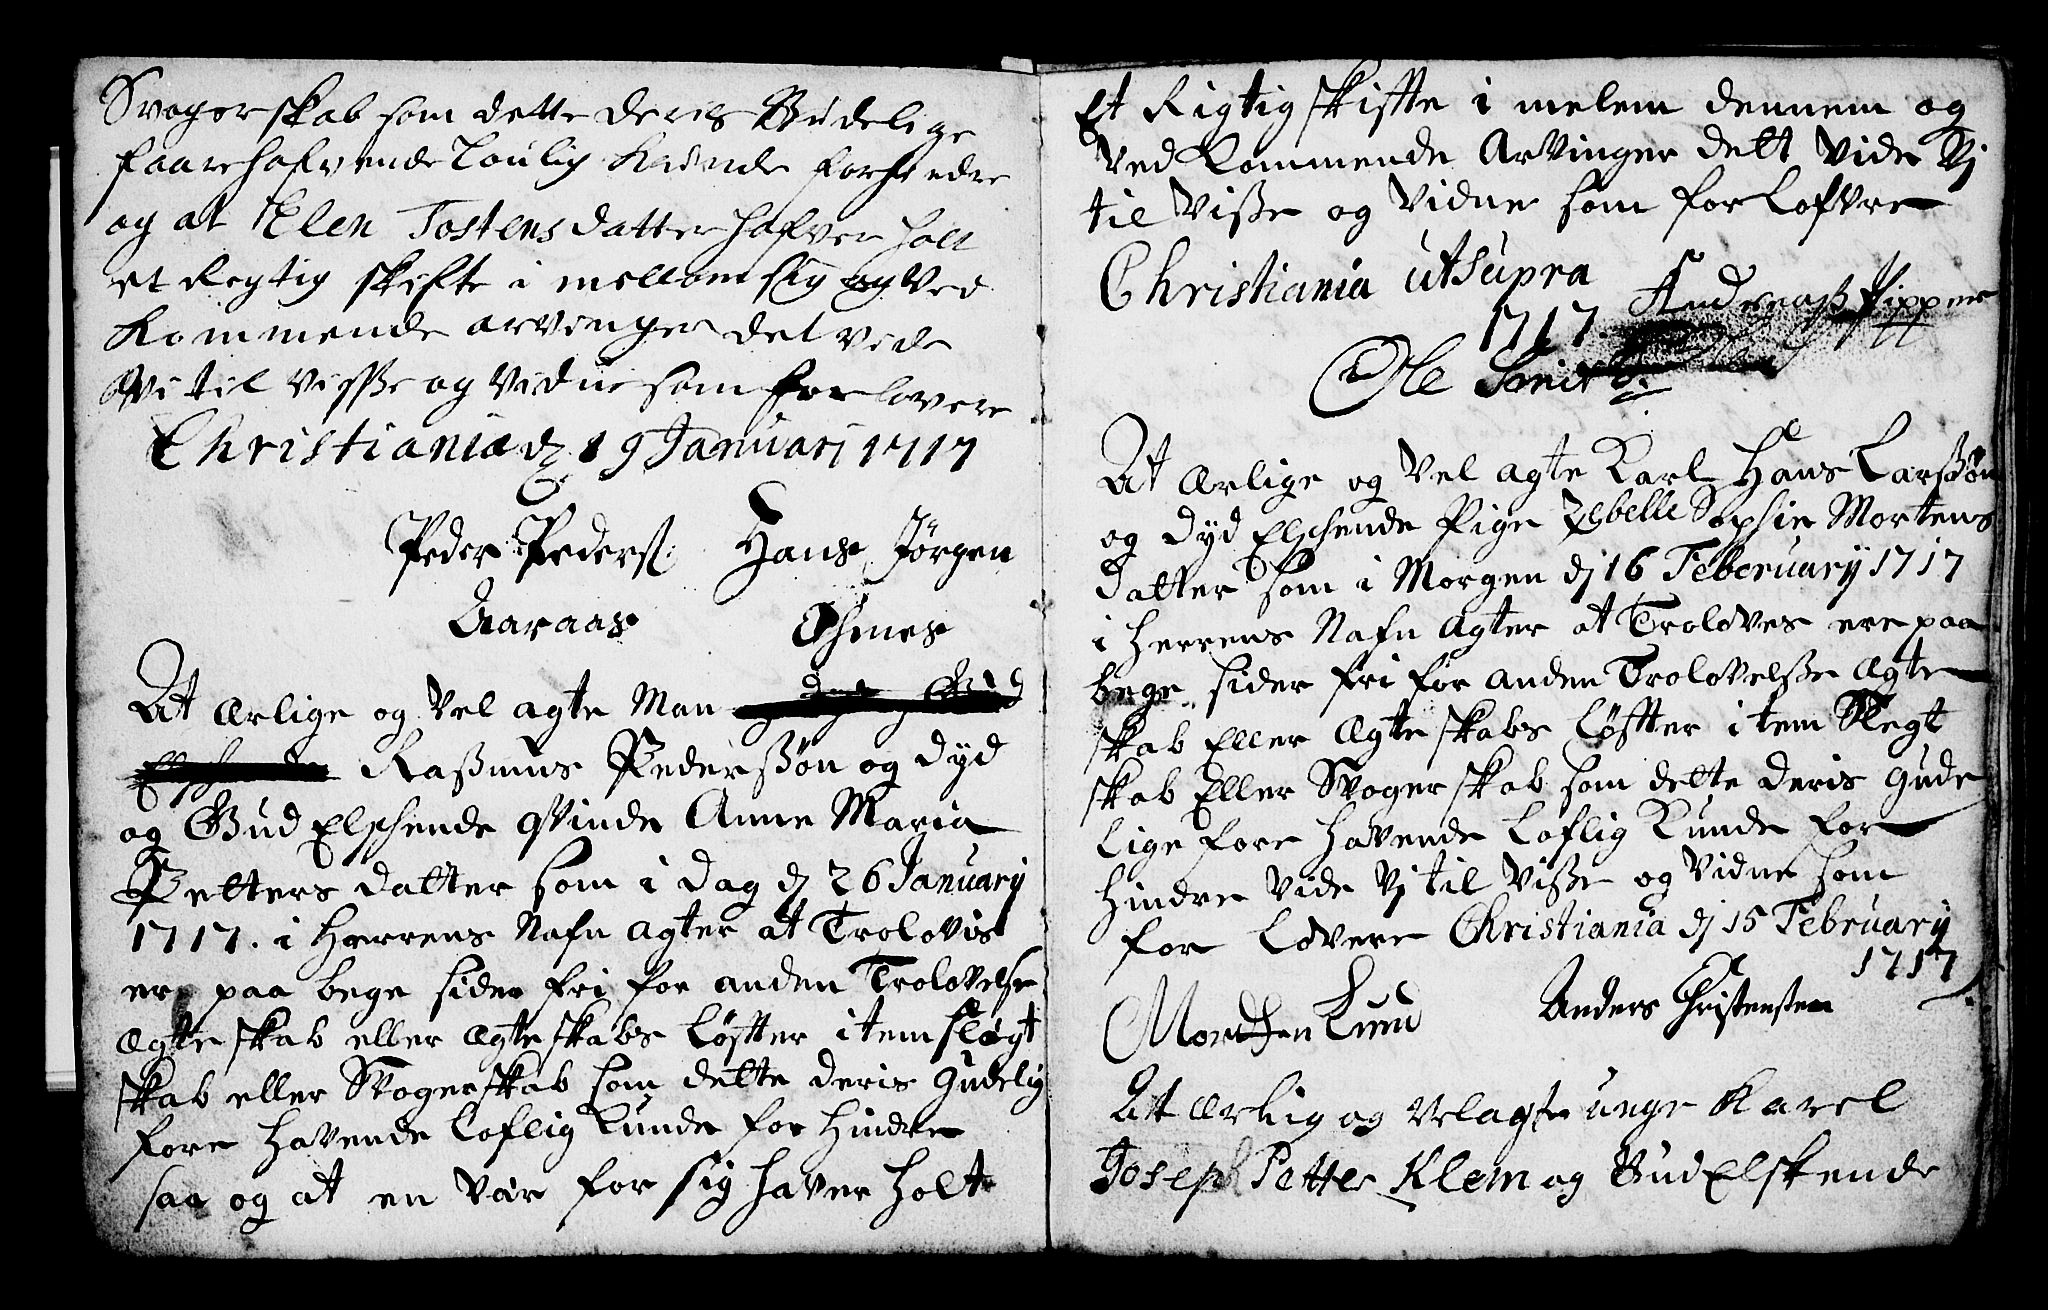 Svogerskab som dette deris Gudelige
faarehafvende Loulig Kunde forhindre
og at Elen Tostens datter hafver holt
et Regtig skifte i mellom sig og Ved
Kommende arvinger det vede
Wi til visse og Vidne som forlovere
Christiania d 19 Januarj 1717
Peder Peders: Hans Jørgen
Aaraas Ohmes
At ærlige og vel agte Man
Rasmus Pedersøn og dyd
og Gud Elschende qvinde Anne Maria
Petters datter som i dag dj 26 Januarij
1717. i Herrens Nafn agter at Trolovis
ere paa bege sider fri for anden Trolovelse
ægteskab eller ægteskabs Løfter item slegt
skab eller Svogerskab som dette deris Gudelig
fore havende Loflig Kunde for hindre
saa og at en var for sig haver holt
Et Rigtig skiffte i melem dennem og
Ved Kommende Arvinger dett vide Vj
til Visse og Vidne som forlofvre
Christiania utsupra
1717. Andreas Pipper
Ole Smit
At ærlige og vel agte Karl Hans Larssøn
og dyd Elschende Pige Zebelle Sophie Mortens
datter som i Morgen dj 16 Feberuarij 1717
i Herrens Nafn agter at Troloves ere paa
bege sider fri for anden Trolovelsse ægte
skab Eller ægteskabs Løffter item Slegt
skab Eller Svogerskab som dette deris gude
lige fore havende Loflig Kunde for
hindre vide Vj til Visse og Vidne som
for Lovere Christiania dj 15 February
1717
Morthen Lund Anders Christensen
At ærlig og velagte unge Karel
Joseph Petter Klem og Gud Elskende